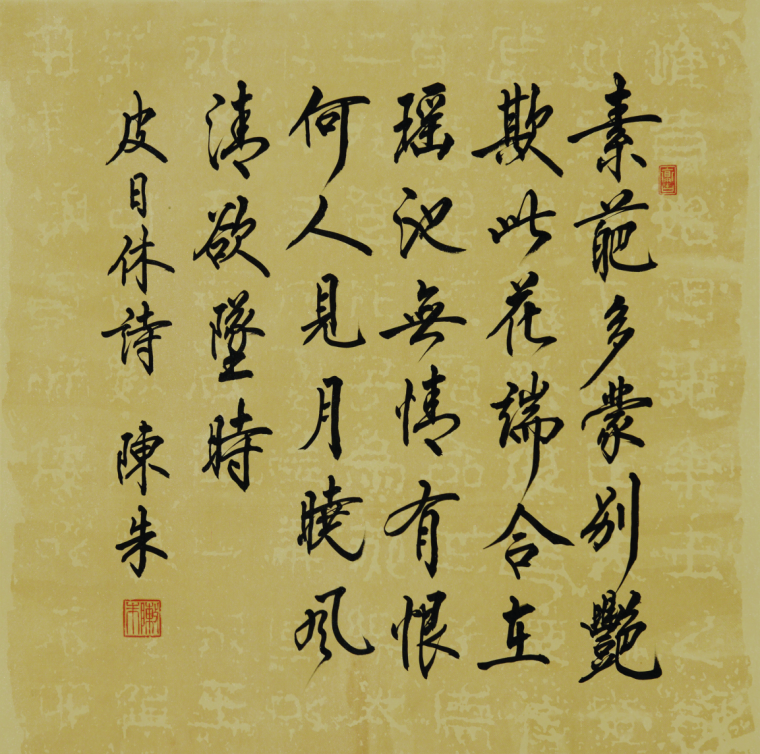 素葩多蒙别艷
欺此花端合在
瑶池無情有恨
何人見月曉風
清欲墜時
皮日休詩 陳朱
陳朱